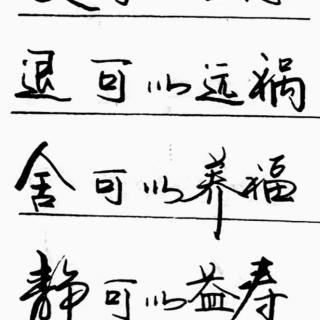 退可以远祸
舍可以养福
静可以益寿